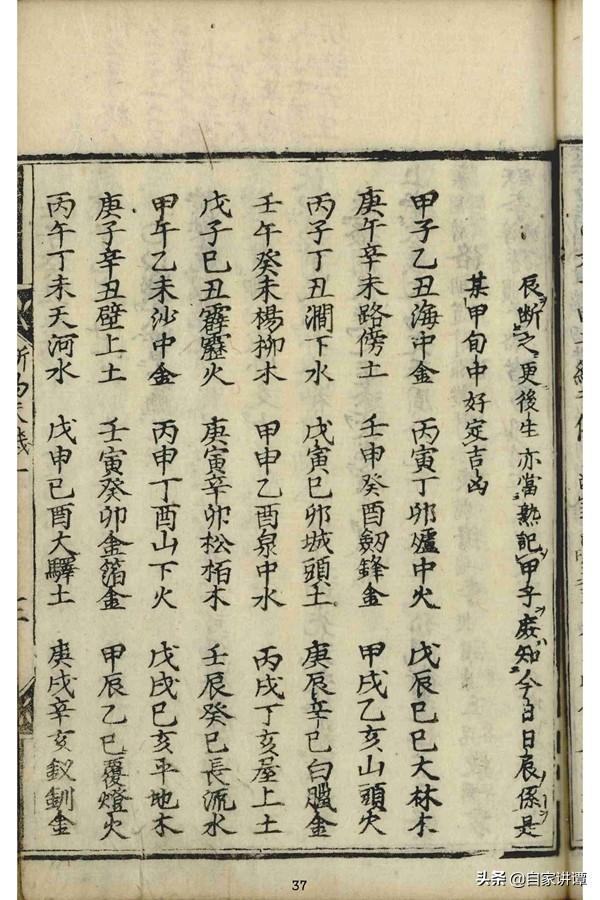 辰斷之更後生亦當熟記甲子庶知今日日辰係是
某甲旬中好定吉凶
甲子乙丑海中金 丙寅丁卯爐中火 戊辰己巳大林木
庚午辛未路傍土 壬申癸酉劒鋒金 甲戌乙亥山頭火
丙子丁丑澗下水 戊寅己卯城頭土 庚辰辛巳白臘金
壬午癸未楊柳木 甲申乙酉泉中水 丙戌丁亥屋上土
戊子己丑霹靂火 庚寅辛卯松栢木 壬辰癸巳長流水
甲午乙未沙中金 丙申丁酉山下火 戊戌己亥平地木
庚子辛丑壁上土 壬寅癸卯金箔金 甲辰乙巳覆燈火
丙午丁未天河水 戊申己酉大驛土 庚戌辛亥釵釧金
37
头条 @自家讲谭